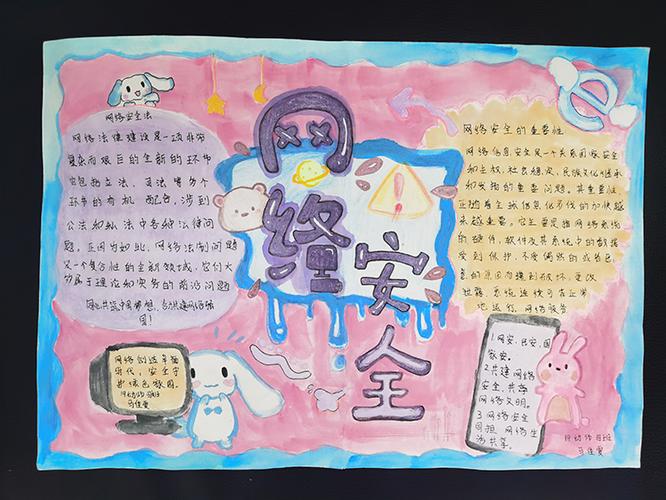 网络安全
网络安全法
网络法律建设是一项非常
复杂而艰巨的全新的环节
它包括立法、司法等各个
环节的有机配合,涉到
公法和私法中各种法律问
题。正因为如此,网络法制问题
又一个复合性的全新领域,它们大
都属于理论和实务的前沿问题
国
网络安全的重要性
网络信息安全是一个关系国家安全
和主权、社会稳定、民族文化继承
和发扬的重要问题。其重要性
正随着全球信息化步伐的加快越
来越重要。它主要是指网络系统
的硬件,软件及其系统中的数据
受到保护,不受偶然的或者恶
意的原因而遭到破坏、更改
泄露,系统连续可靠正常
地运行,网络服务
网络创造幸福
时代,安全守
护绿色家园。
1.网安,民安,国
家安。
2.共建网络
安全,共享
网络文明。
3.网络安全
同担,网络生
活共享。